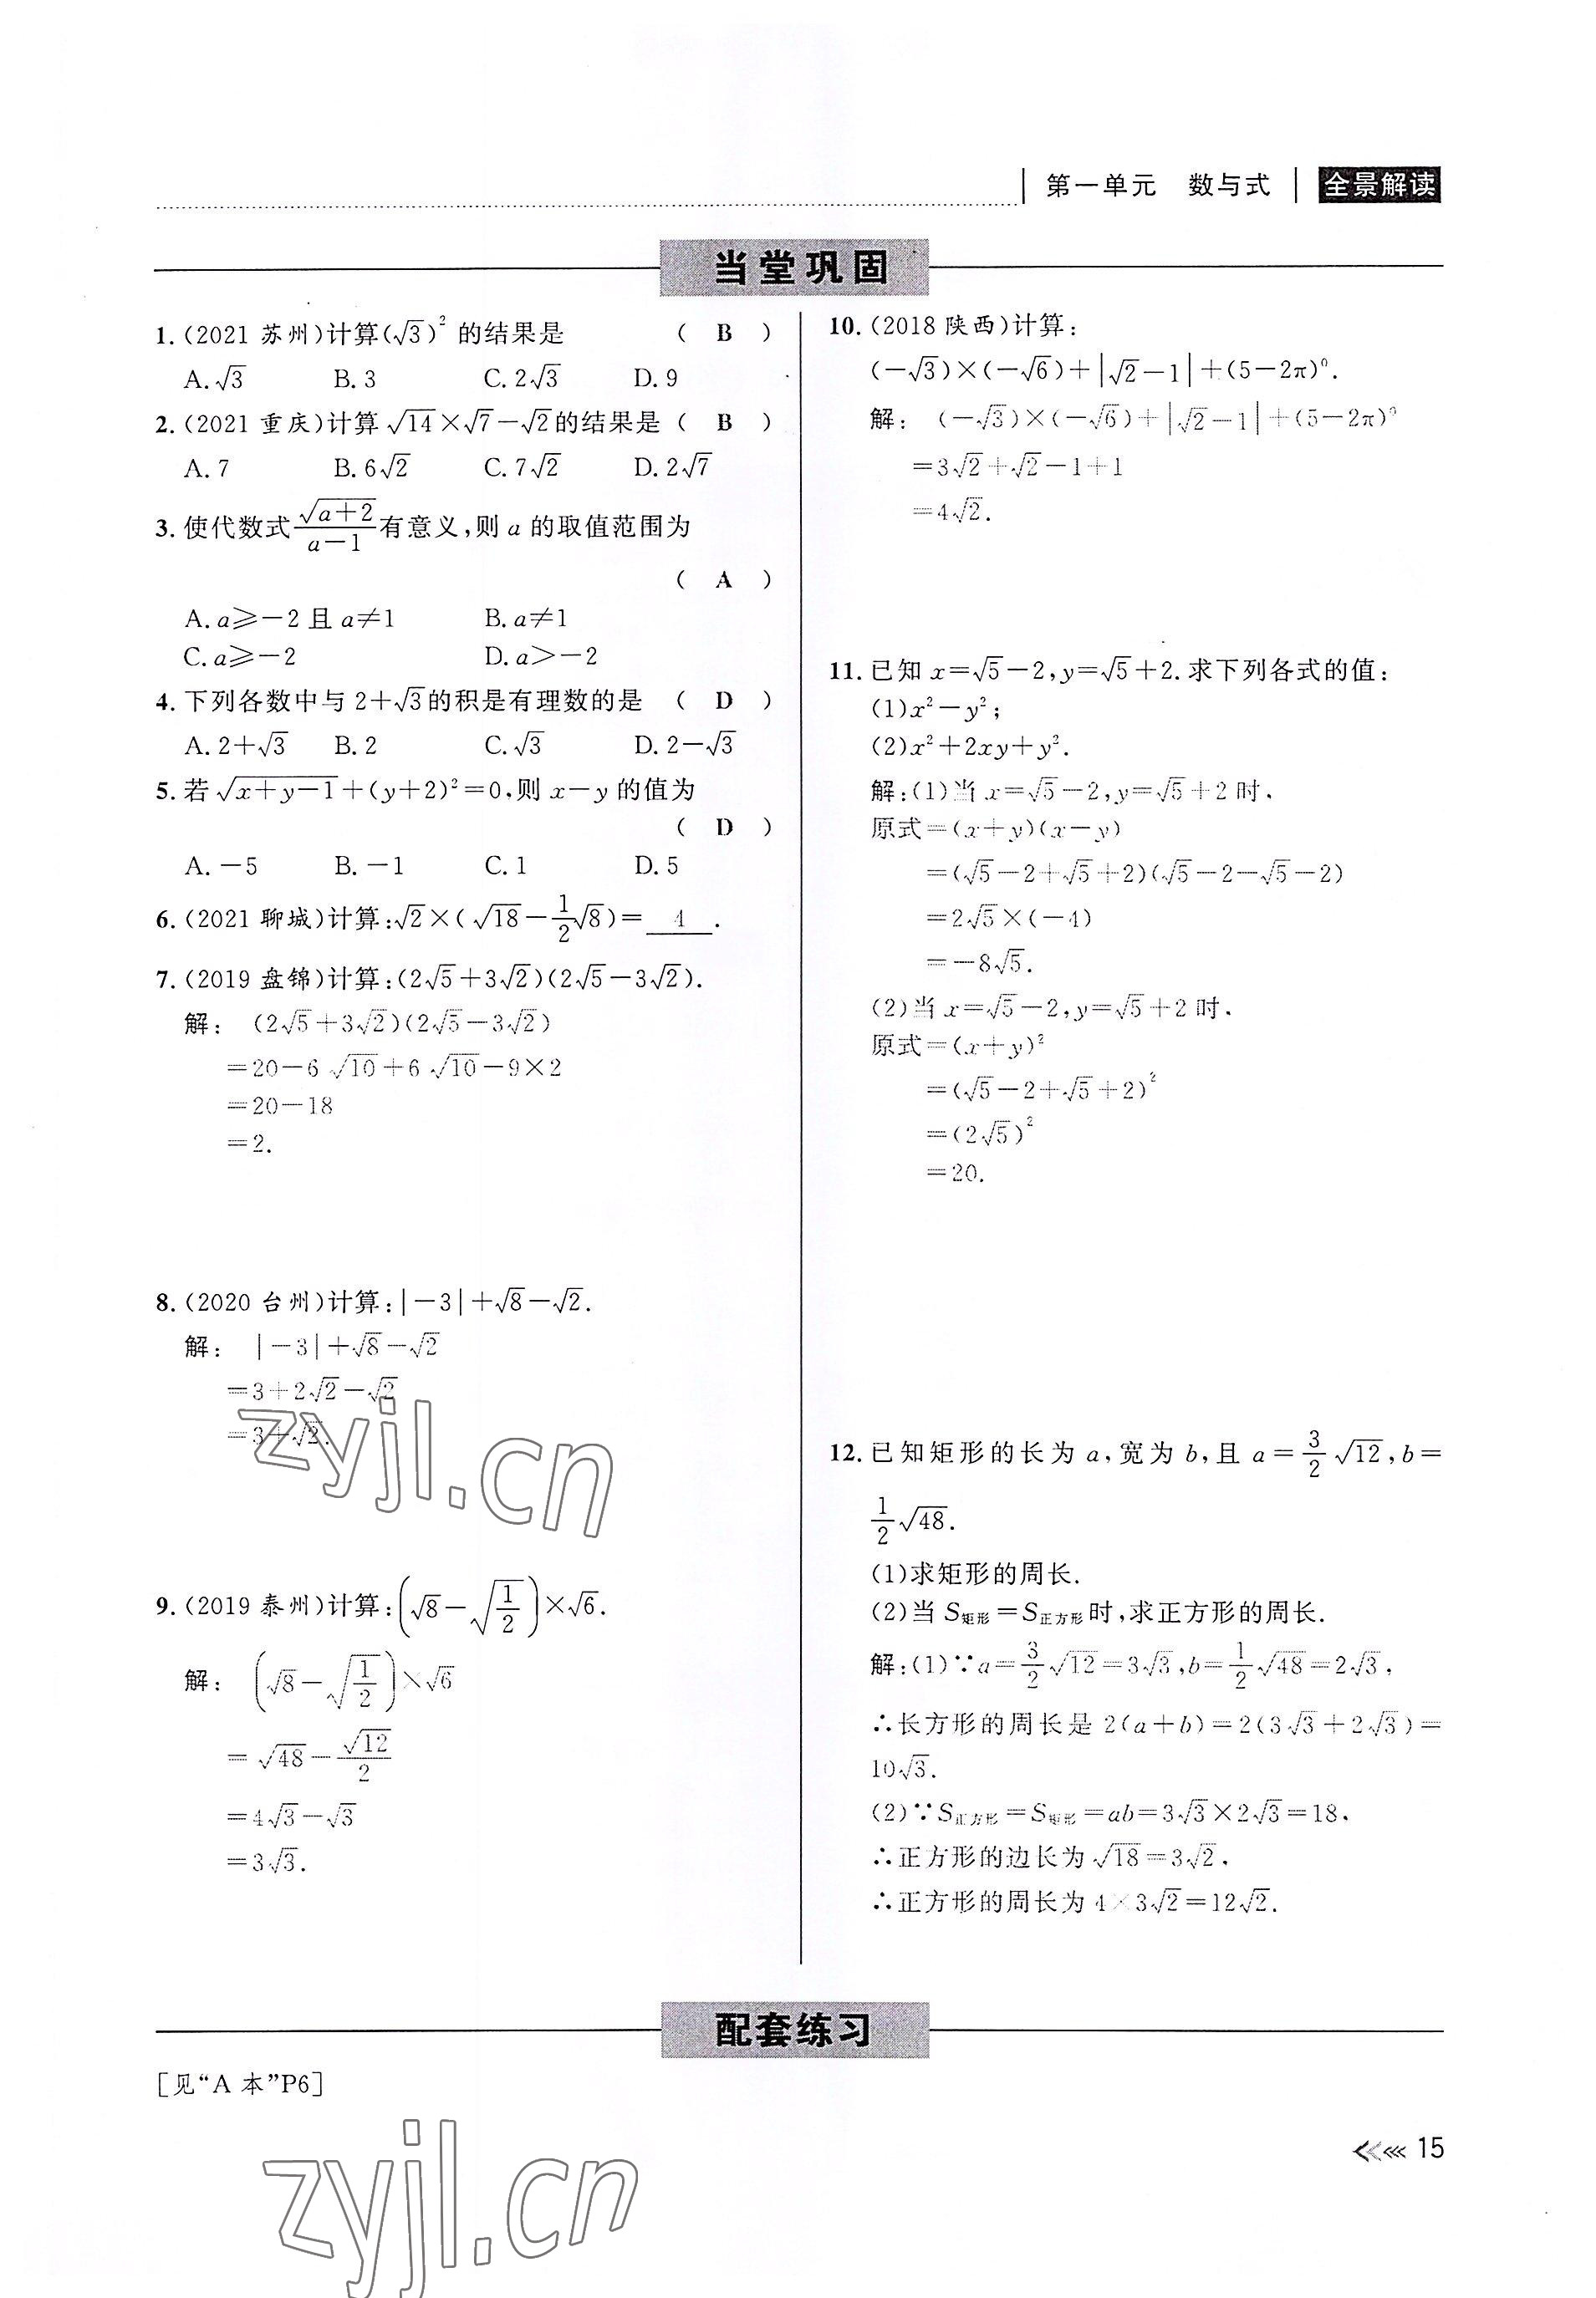 第一单元 数与式 全景解读
当堂巩固
1.(2021 苏州)计算(√3)²的结果是 ( B )
A.√3 B.3 C.2√3 D.9
2.(2021 重庆)计算√14×√7－√2的结果是 ( B )
A.7 B.6√2 C.7√2 D.2√7
3.使代数式√(a＋2)/(a－1)有意义,则 a 的取值范围为
( A )
A.a≥－2 且 a≠1 B.a≠1
C.a≥－2 D.a＞－2
4.下列各数中与 2＋√3的积是有理数的是 ( D )
A.2＋√3 B.2 C.√3 D.2－√3
5.若√(x＋y－1)＋(y＋2)²＝0,则 x－y 的值为
( D )
A.－5 B.－1 C.1 D.5
6.(2021 聊城)计算:√2×(√18－1/2√8)＝ 4 .
7.(2019 盘锦)计算:(2√5＋3√2)(2√5－3√2).
解: (2√5＋3√2)(2√5－3√2)
＝20－6√10＋6√10－9×2
＝20－18
＝2.
8.(2020 台州)计算:|－3|＋√8－√2.
解: |－3|＋√8－√2
＝3＋2√2－√2
＝3＋√2.
9.(2019 泰州)计算:(√8－√(1/2))×√6.
解: (√8－√(1/2))×√6
＝√48－√12/2
＝4√3－√3
＝3√3.
10.(2018 陕西)计算:
(－√3)×(－√6)＋|√2－1|＋(5－2π)⁰.
解: (－√3)×(－√6)＋|√2－1|＋(5－2π)⁰
＝3√2＋√2－1＋1
＝4√2.
11.已知 x＝√5－2,y＝√5＋2.求下列各式的值:
(1)x²－y²;
(2)x²＋2xy＋y².
解:(1)当 x＝√5－2,y＝√5＋2 时,
原式＝(x＋y)(x－y)
＝(√5－2＋√5＋2)(√5－2－√5－2)
＝2√5×(－4)
＝－8√5.
(2)当 x＝√5－2,y＝√5＋2 时,
原式＝(x＋y)²
＝(√5－2＋√5＋2)²
＝(2√5)²
＝20.
12.已知矩形的长为 a,宽为 b,且 a＝3/2√12,b＝
1/2√48.
(1)求矩形的周长.
(2)当 S矩形＝S正方形时,求正方形的周长.
解:(1)∵a＝3/2√12＝3√3,b＝1/2√48＝2√3,
∴长方形的周长是 2(a＋b)＝2(3√3＋2√3)＝
10√3.
(2)∵S正方形＝S矩形＝ab＝3√3×2√3＝18,
∴正方形的边长为√18＝3√2,
∴正方形的周长为 4×3√2＝12√2.
配套练习
[见“A 本”P6]
15
zyjl.cn
zyjl.cn